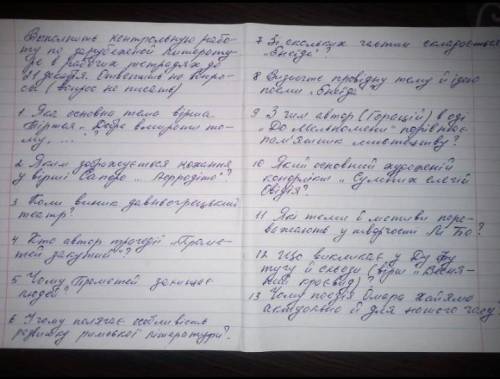 Выполнить контрольную рабо-
ту по зарубежной литерату-
ре в рабочих тетрадях до
21 декабря. Ответить на вопро-
сы (вопрос не писать)
1 Яка основна тема вірша
Тіртея „Добре вмирати то-
му, ...
2 Яким зображується кохання
у вірші Сапфо „ Афродіта"?
3 Коли виник давньогрецький
театр?
4 Хто автор трагедії „Проме-
тей закутий"?
5 Чому Прометей захищає
людей?
6 У чому полягає особливість
розвитку римської літератури?
7 Зі скількох частин складається
„Енеїда"?
8 Визначте провідну тему й ідею
поеми „Енеїда"
9 З чим автор (Горацій) в оді
„До Мельпомени" порівнює
пам'ятник мистецтву?
10 Який основний художній
конфлікт „Сумних елегій
Овідія?
11 Які теми й мотиви пере-
важають у творчості Лі Бо?
12 Що викликає у Ду Фу
тугу й сльози (вірш „Весня-
ний краєвид)
13 Чому поезія Омара Хайяма
актуальна й для нашого часу